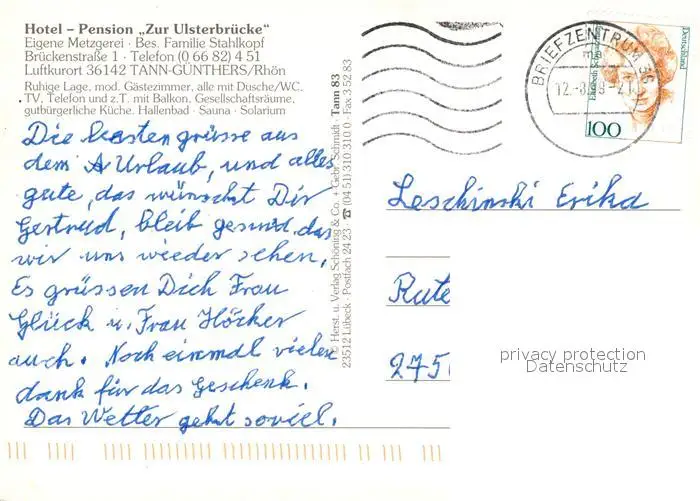 Hotel – Pension „Zur Ulsterbrücke“
Eigene Metzgerei · Bes. Familie Stahlkopf
Brückenstraße 1 · Telefon (0 66 82) 4 51
Luftkurort 36142 TANN-GÜNTHERS/Rhön
Ruhige Lage, mod. Gästezimmer, alle mit Dusche/WC,
TV, Telefon und z.T. mit Balkon. Gesellschaftsräume,
gutbürgerliche Küche. Hallenbad · Sauna · Solarium
Die besten grüsse aus
dem Urlaub, und alles
gute, das wünscht Dir
Gertrud, bleib gesund, das
wir uns wieder sehen,
Es grüssen Dich Frau
Glück u. Frau Höcker
auch. Noch einmal vielen
dank für das Geschenk.
Das Wetter geht soviel.
© Herst. u. Verlag Schöning & Co. + Gebr. Schmidt · Tann 83
23512 Lübeck · Postfach 24 23 · ☎ (04 51) 310 310 0 · Fax 3 52 83
BRIEFZENTRUM 36
12.-8.98-21
Deutschland
100
Leschinski Erika
Rute
275
privacy protection
Datenschutz